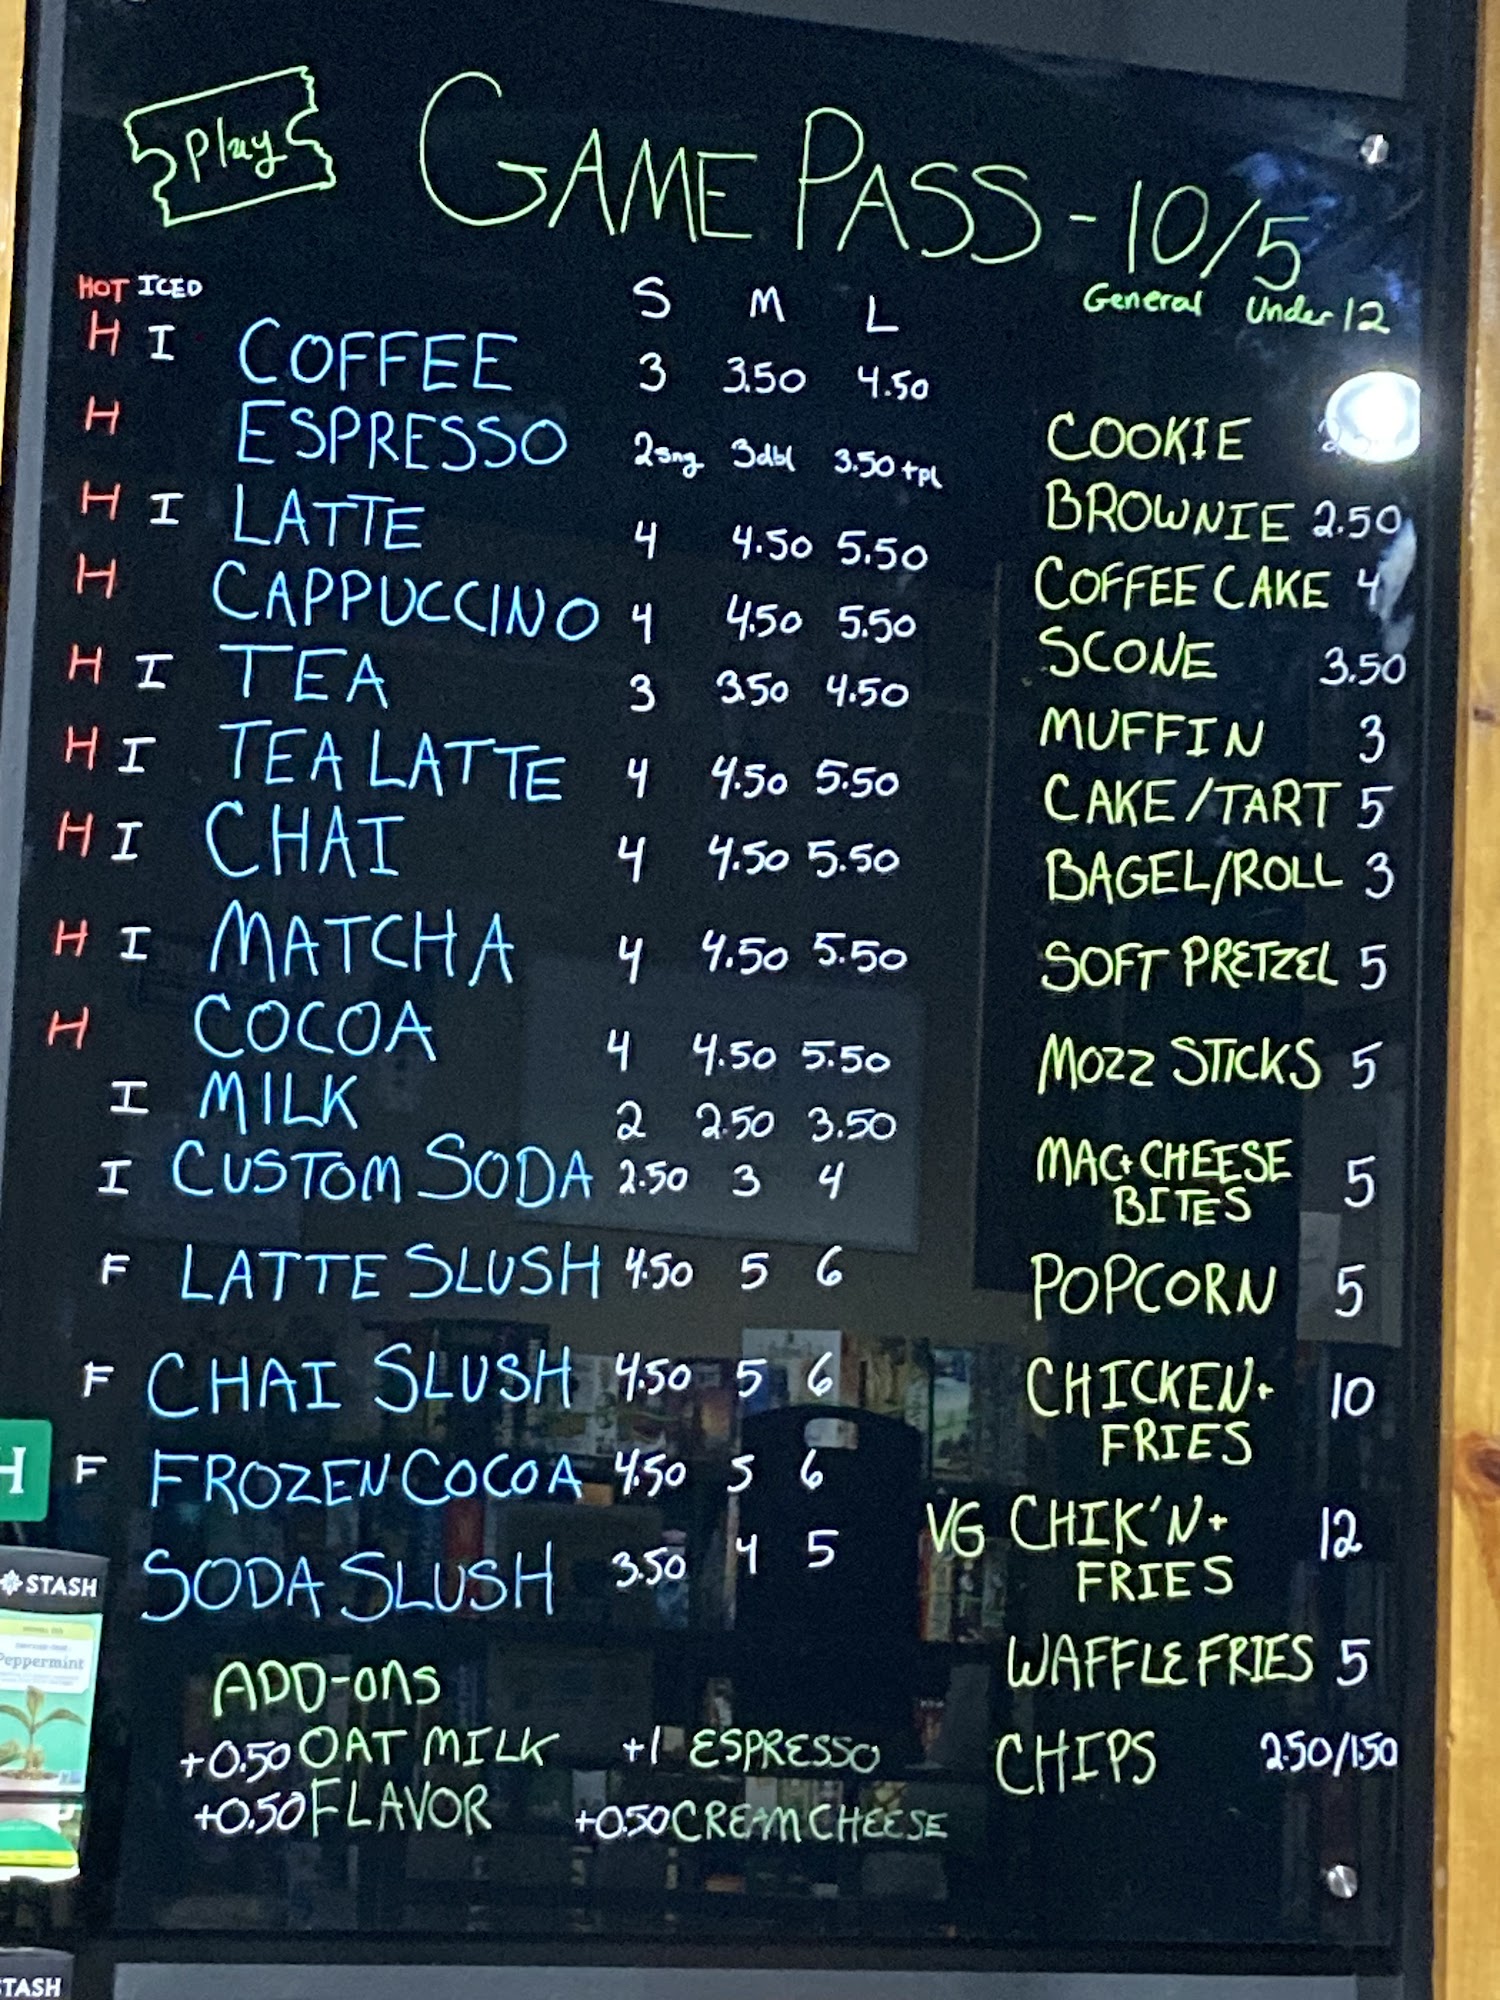 Play GAME PASS - 10/5
General Under 12
HOT ICED S M L
H I COFFEE 3 3.50 4.50
H ESPRESSO 2sng 3dbl 3.50+pl
H I LATTE 4 4.50 5.50
H CAPPUCCINO 4 4.50 5.50
H I TEA 3 3.50 4.50
H I TEA LATTE 4 4.50 5.50
H I CHAI 4 4.50 5.50
H I MATCHA 4 4.50 5.50
H COCOA 4 4.50 5.50
I MILK 2 2.50 3.50
I CUSTOM SODA 2.50 3 4
F LATTE SLUSH 4.50 5 6
F CHAI SLUSH 4.50 5 6
F FROZEN COCOA 4.50 5 6
SODA SLUSH 3.50 4 5
ADD-ONS
+0.50 OAT MILK +1 ESPRESSO
+0.50 FLAVOR +0.50 CREAM CHEESE
COOKIE
BROWNIE 2.50
COFFEE CAKE 4
SCONE 3.50
MUFFIN 3
CAKE/TART 5
BAGEL/ROLL 3
SOFT PRETZEL 5
MOZZ STICKS 5
MAC+CHEESE
BITES 5
POPCORN 5
CHICKEN+ 10
FRIES
VG CHIK'N+ 12
FRIES
WAFFLE FRIES 5
CHIPS 2.50/1.50
H
STASH
Peppermint
STASH